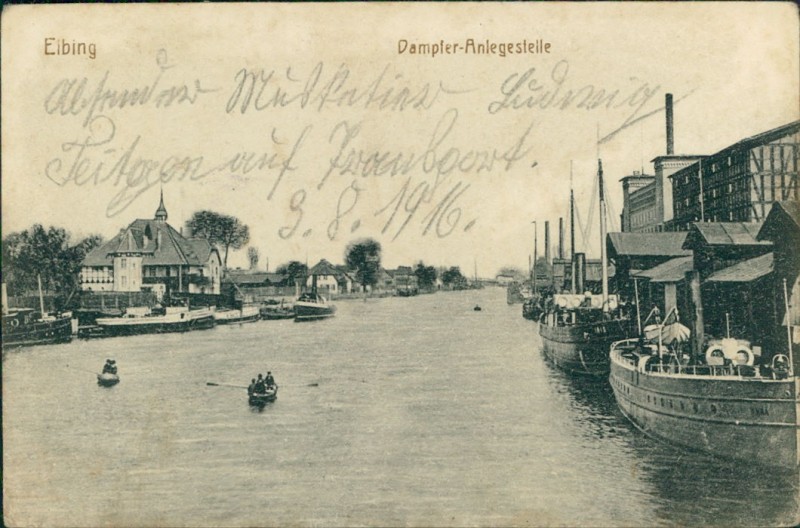 Elbing
Dampfer-Anlegestelle
Absender Musketier Ludwig
Teitgen auf Transport.
3.8.1916.